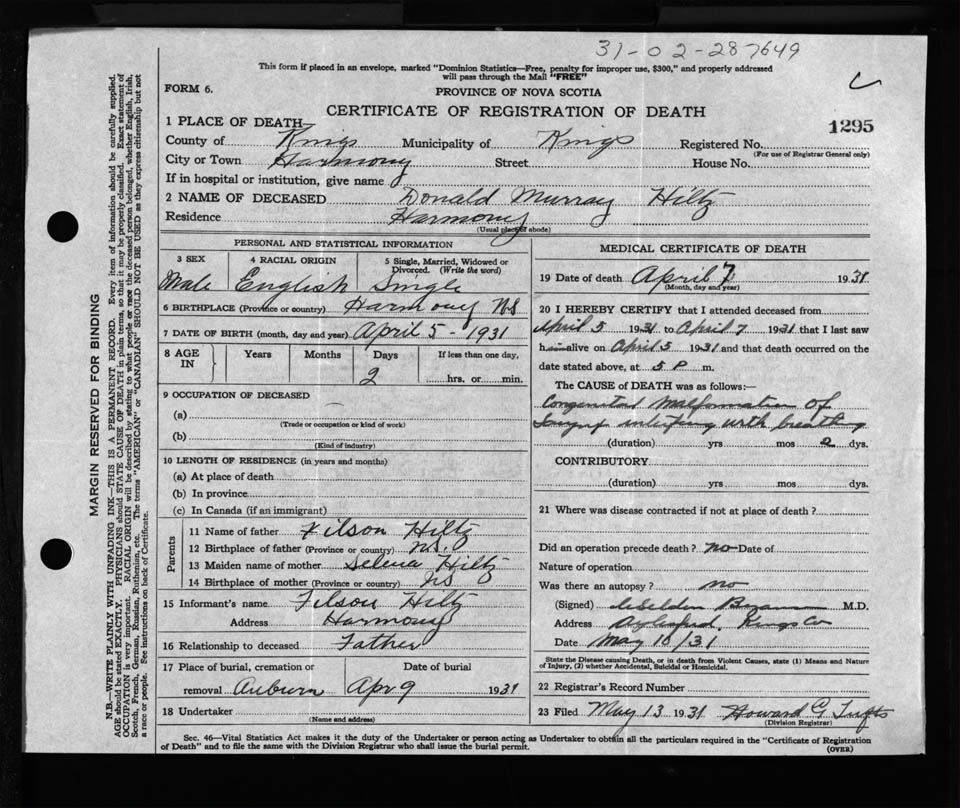 31-02-287649
This form if placed in an envelope, marked "Dominion Statistics—Free, penalty for improper use, $300," and properly addressed
will pass through the Mail "FREE"
FORM 6.
PROVINCE OF NOVA SCOTIA
CERTIFICATE OF REGISTRATION OF DEATH
1295
1 PLACE OF DEATH—
County of Kings Municipality of Kings Registered No.
(For use of Registrar General only)
City or Town Harmony Street House No.
If in hospital or institution, give name
2 NAME OF DECEASED Donald Murray Hiltz
Residence Harmony
(Usual place of abode)
PERSONAL AND STATISTICAL INFORMATION
3 SEX 4 RACIAL ORIGIN 5 Single, Married, Widowed or
Divorced. (Write the word)
Male English Single
6 BIRTHPLACE (Province or country) Harmony NS
7 DATE OF BIRTH (month, day and year) April 5 - 1931
8 AGE IN Years Months Days If less than one day,
2 hrs. or min.
9 OCCUPATION OF DECEASED
(a)
(Trade or occupation or kind of work)
(b)
(Kind of industry)
10 LENGTH OF RESIDENCE (in years and months)
(a) At place of death
(b) In province
(c) In Canada (if an immigrant)
Parents
11 Name of father Filson Hiltz
12 Birthplace of father (Province or country) N.S.
13 Maiden name of mother Selena Hiltz
14 Birthplace of mother (Province or country) NS
15 Informant's name Filson Hiltz
Address Harmony
16 Relationship to deceased Father
17 Place of burial, cremation or Date of burial
removal Auburn Apr 9 1931
18 Undertaker
(Name and address)
MEDICAL CERTIFICATE OF DEATH
19 Date of death April 7 1931
(Month, day and year)
20 I HEREBY CERTIFY that I attended deceased from
April 5 1931 to April 7 1931 that I last saw
him alive on April 5 1931 and that death occurred on the
date stated above, at 5 P m.
The CAUSE of DEATH was as follows:—
Congenital Malformation of
with breathing
(duration) yrs mos 2 dys.
CONTRIBUTORY
(duration) yrs. mos. dys.
21 Where was disease contracted if not at place of death?
Did an operation precede death? no Date of
Nature of operation
Was there an autopsy? no
(Signed) M.D.
Address Aylesford, Kings Co
Date May 10/31
State the Disease causing Death, or in death from Violent Causes, state (1) Means and Nature
of Injury, (2) whether Accidental, Suicidal or Homicidal.
22 Registrar's Record Number
23 Filed May 13 1931 Howard G Tufts
(Division Registrar)
Sec. 46—Vital Statistics Act makes it the duty of the Undertaker or person acting as Undertaker to obtain all the particulars required in the "Certificate of Registration
of Death" and to file the same with the Division Registrar who shall issue the burial permit.
(OVER)
MARGIN RESERVED FOR BINDING
N.B.—WRITE PLAINLY WITH UNFADING INK—THIS IS A PERMANENT RECORD. Every item of information should be carefully supplied.
AGE should be stated EXACTLY. PHYSICIANS should STATE CAUSE OF DEATH in plain terms, so that it may be properly classified. Exact statement of
OCCUPATION is very important. RACIAL ORIGIN will be described by stating to what people or race the deceased person belonged, whether English, Irish,
Scotch, French, German, Russian, Ruthenian, etc. The terms "AMERICAN" or "CANADIAN" SHOULD NOT BE USED as they express citizenship but not
a race or people. See instructions on back of Certificate.